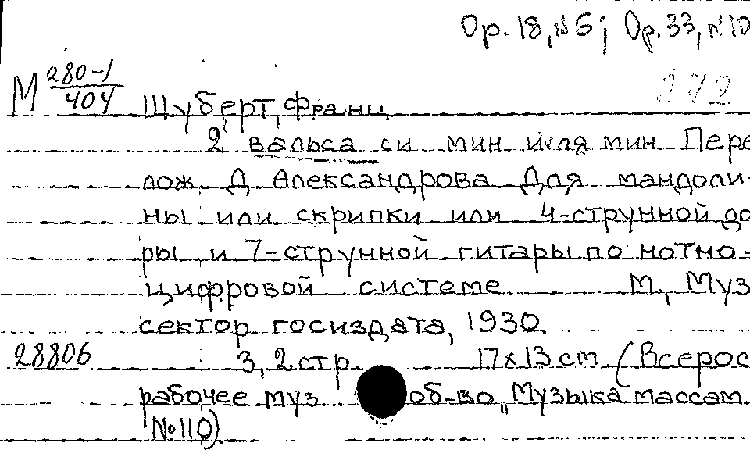 Op. 18, №6; Op. 33, №10
М 280-1/404 Шуберт, Франц 272
2 вальса си мин и ля мин Пере
лож. Д Александрова Для мандоли-
ны или скрипки или 4-струнной до
ры и 7-струнной гитары по нотно-
цифровой системе М., Муз
сектор госиздата, 1930.
28806 3, 2 стр. 17х13 см (Всерос
рабочее муз об-во „Музыка массам
№110)